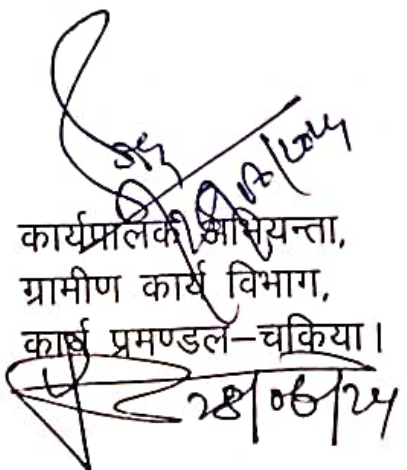 कार्यपालक अभियन्ता,
ग्रामीण कार्य विभाग,
कार्य प्रमण्डल-चकिया।
28/06/24